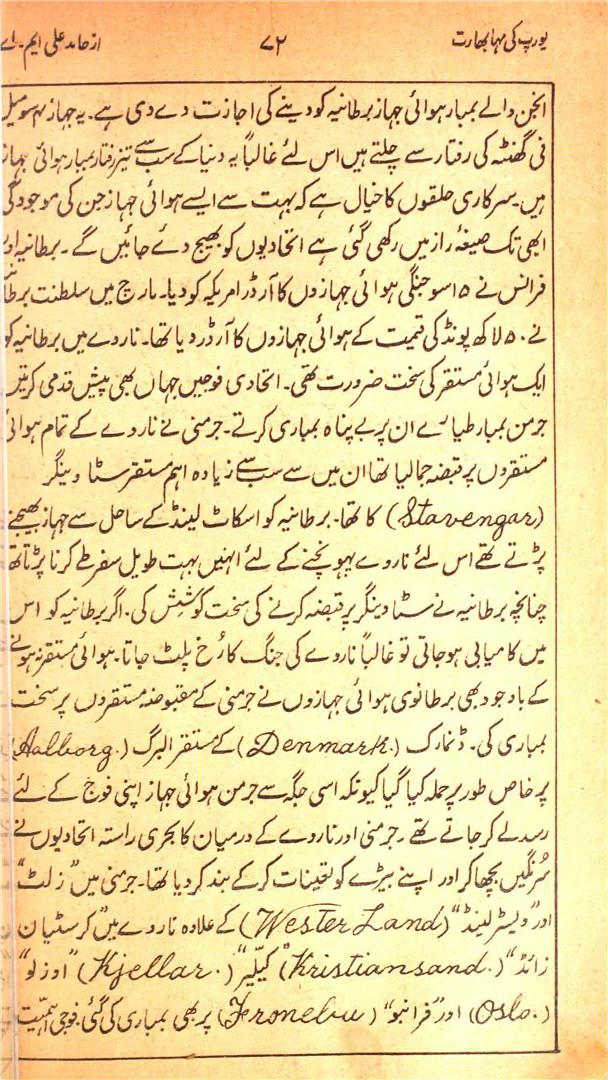 یورپ کی مہابھارت
۷۲
از حامد علی ایم۔اے
انجن والے بمبار ہوائی جہاز برطانیہ کو دینے کی اجازت دے دی ہے۔ یہ جہاز ۳ سو میل
فی گھنٹہ کی رفتار سے چلتے ہیں اس لئے غالباً یہ دنیا کے سب سے تیز رفتار بمبار ہوائی جہاز
ہیں۔ سرکاری حلقوں کا خیال ہے کہ بہت سے ایسے ہوائی جہاز جن کی موجودگی
ابھی تک صیغۂ راز میں رکھی گئی ہے اتحادیوں کو بھیج دئے جائیں گے۔ برطانیہ اور
فرانس نے ۱۵ سو جنگی ہوائی جہازوں کا آرڈر امریکہ کو دیا۔ مارچ میں سلطنت
نے ۵۰ لاکھ پونڈ کی قیمت کے ہوائی جہازوں کا آرڈر دیا تھا۔ ناروے میں برطانیہ کو
ایک ہوائی مستقر کی سخت ضرورت تھی۔ اتحادی فوجیں جہاں بھی پیش قدمی کرتیں
جرمن بمبار طیارے ان پر بے پناہ بمباری کرتے۔ جرمنی نے ناروے کے تمام ہوائی
مستقروں پر قبضہ جما لیا تھا ان میں سے سب سے زیادہ اہم مستقر سٹا وینگر
(Stavengar) کا تھا۔ برطانیہ کو اسکاٹ لینڈ کے ساحل سے جہاز بھیجنے
پڑتے تھے اس لئے ناروے پہونچنے کے لئے انہیں بہت طویل سفر طے کرنا پڑتا تھا
چنانچہ برطانیہ نے سٹا وینگر پر قبضہ کرنے کی سخت کوشش کی۔ اگر برطانیہ کو اس
میں کامیابی ہو جاتی تو غالباً ناروے کی جنگ کا رُخ پلٹ جاتا۔ ہوائی مستقر نہ ہونے
کے باوجود بھی برطانوی ہوائی جہازوں نے جرمنی کے مقبوضہ مستقروں پر سخت
بمباری کی۔ ڈنمارک (Denmark.) کے مستقر البرگ (Aalborg.)
پر خاص طور پر حملہ کیا گیا کیونکہ اسی جگہ سے جرمن ہوائی جہاز اپنی فوج کے لئے
رسد لے کر جاتے تھے۔ جرمنی اور ناروے کے درمیان کا بحری راستہ اتحادیوں نے
سُرنگیں بچھا کر اور اپنے بیڑے کو تعینات کر کے بند کر دیا تھا۔ جرمنی میں "زلٹ"
اور "ویسٹر لینڈ" (Wester Land) کے علاوہ ناروے میں "کرسٹیان
زائڈ" (Kristiansand.) "کیلّیر" (Kjellar.) "اوزلو"
(Oslo.) اور "فرانبو" (Fronebu) پر بھی بمباری کی گئی۔ فوجی اہمیت